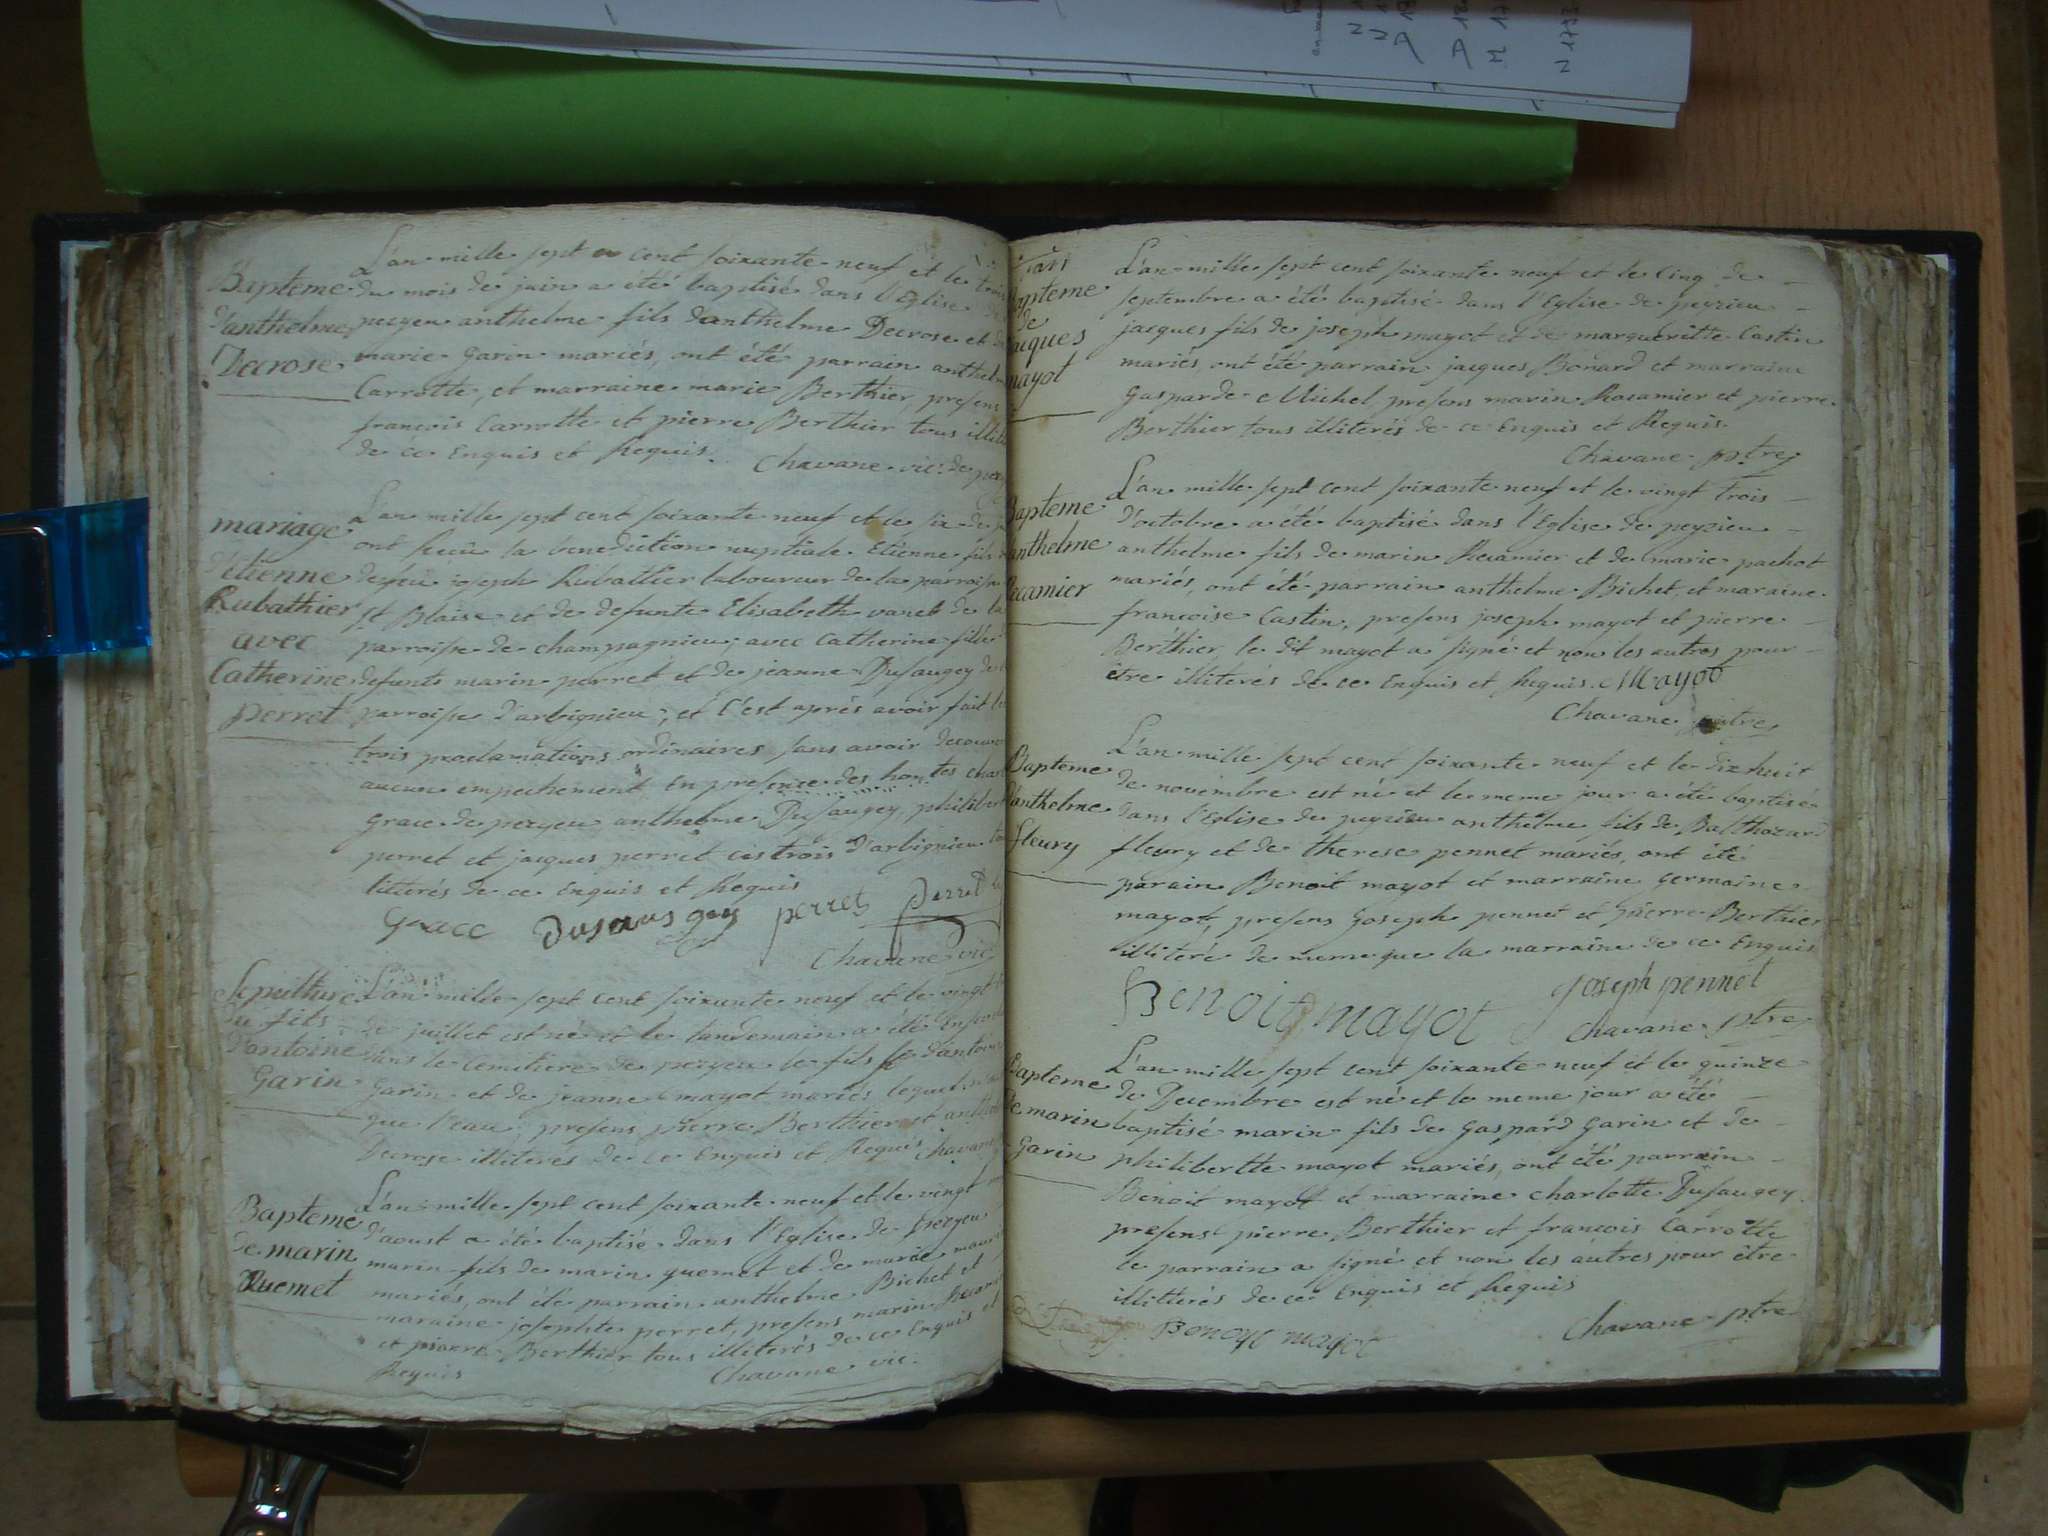 Bapteme
d'anthelme
Decrose
L'an mille sept cent soixante neuf et le trois
du mois de juin a été baptisé dans l'Eglise de
peyzeu anthelme fils d'anthelme Decrose et de
marie garin mariés, ont été parrain anthelme
Carrotte, et marraine marie Berthier, presens
francois Carrotte et pierre Berthier tous illit
de ce Enquis et Requis. Chavane vic. de pey
mariage
d'étienne
Rubathier
avec
Catherine
perret
L'an mille sept cent soixante neuf et le six de
ont Recû la benediction nuptiale Etienne fils
de feu joseph Rubathier laboureur de la parroisse
st Blaise et de defunte Elisabeth vanet de la
parroisse de champagnieu; avec Catherine fille
defunts marin perret et de jeanne Dusaugey de
parroisse d'arbignieu; et c'est aprés avoir fait les
trois proclamations ordinaires sans avoir decouv
aucun empechement, En presence des hon tes char
grace de peyzeu anthelme Dusaugey, philibert
perret et jacques perret ces trois d'arbignieu
littérés de ce Enquis et Requis
Grace Dusausgey perret perret
Chavane vic
Sepulture
du fils
d'antoine
Garin
L'an mille sept cent soixante neuf et le vingt
de juillet est né et le landemain a été Enseveli
dans le cemitiere de peyzeu le fils d'antoine
Garin et de jeanne mayot mariés lequel n'a
que l'eau, presens pierre Berthier et anthelme
Decrose illiterés de ce Enquis et Requis Chavane
Bapteme
de marin
Quemet
L'an mille sept cent soixante neuf et le vingt
d'aoust a été baptisé dans l'Eglise de peyzeu
marin fils de marin quemet et de marie
mariés, ont été parrain anthelme Bichet et
maraine josephte perret, presens marin Recamier
et pierre Berthier tous illiterés de ce Enquis et
Requis Chavane vic.
Bapteme
de
jacques
mayot
L'an mille sept cent soixante neuf et le Cinq de
septembre a été baptisé dans l'Eglise de peyzieu
jacques fils de joseph mayot et de margueritte Castin
mariés, ont été parrain jacques Bonard et marraine
gasparde Michel, presens marin Racamier et pierre
Berthier tous illiterés de ce Enquis et Requis.
Chavane ptre
Bapteme
d'anthelme
Recamier
L'an mille sept cent soixante neuf et le vingt trois
d'octobre a été baptisé dans l'Eglise de peyzieu
anthelme fils de marin Recamier et de marie pachot
mariés, ont été parrain anthelme Bichet, et maraine
francoise Castin, presens joseph mayot et pierre
Berthier, le dit mayot a signé et non les autres pour
être illiterés de ce Enquis et Requis. Mayot
Chavane ptre
Bapteme
d'anthelme
fleury
L'an mille sept cent soixante neuf et le dixhuit
de novembre est né et le meme jour a été baptisé
dans l'Eglise de peyzieu anthelme fils de Balthazard
fleury et de therese pennet mariés, ont été
parain Benoit mayot et marraine germaine
mayot, presens joseph pennet et pierre Berthier
illiteré de meme que la marraine de ce Enquis
Benoit mayot joseph pennet
Chavane ptre
Bapteme
de marin
Garin
L'an mille sept cent soixante neuf et le quinze
de Decembre est né et le meme jour a été
baptisé marin fils de Gaspard Garin et de
philibertte mayot mariés, ont été parrain
Benoit mayot et marraine charlotte Dusaugey
presens pierre Berthier et francois Carrotte
le parrain a signé et non les autres pour être
illitterés de ce Enquis et Requis
Benoyt mayot Chavane ptre